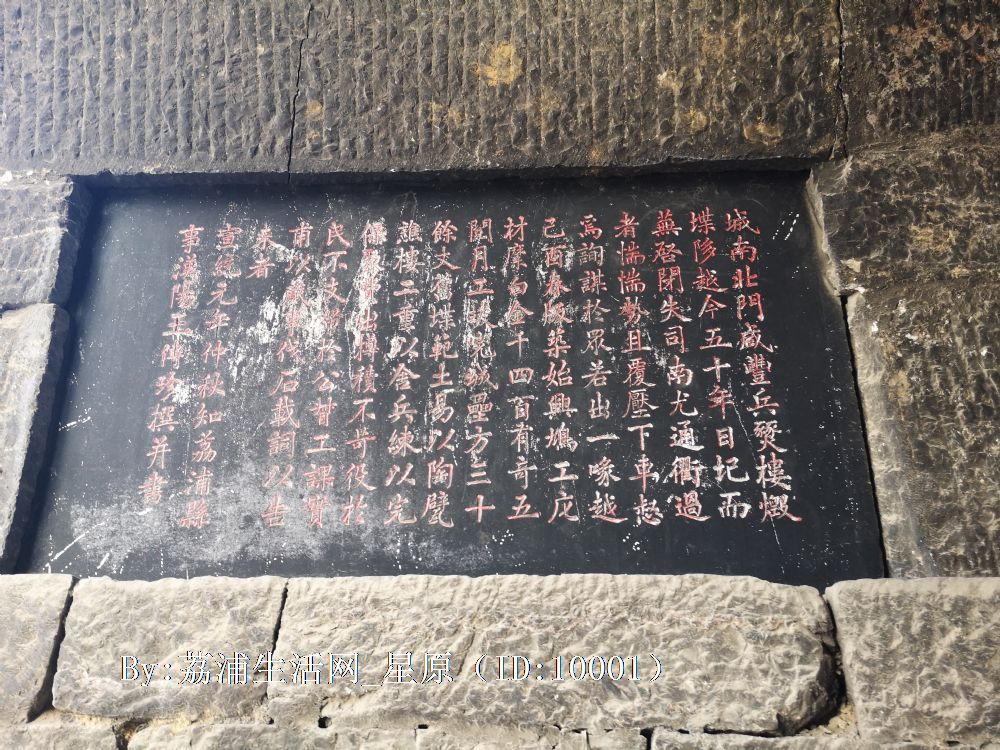 城南北門咸豐兵燹樓燬
堞陊越今五十年日圮而
蕪啓閉失司南尤通衢過
者惴惴勢且覆壓下車
焉詢謀於眾若出一喙越
己酉春版築始興鳩工庀
材白金千四百有奇五
閱月工竣完城壘方三十
餘丈舊堞範土易以陶甓
譙樓二重以舍兵練以完
出積不苛役於
民不支於公督工課實
甫以伐石載詞以告
來者
宣統元年仲秋知荔浦縣
事漢陽王撰并書
By:荔浦生活网_星原（ID:10001）